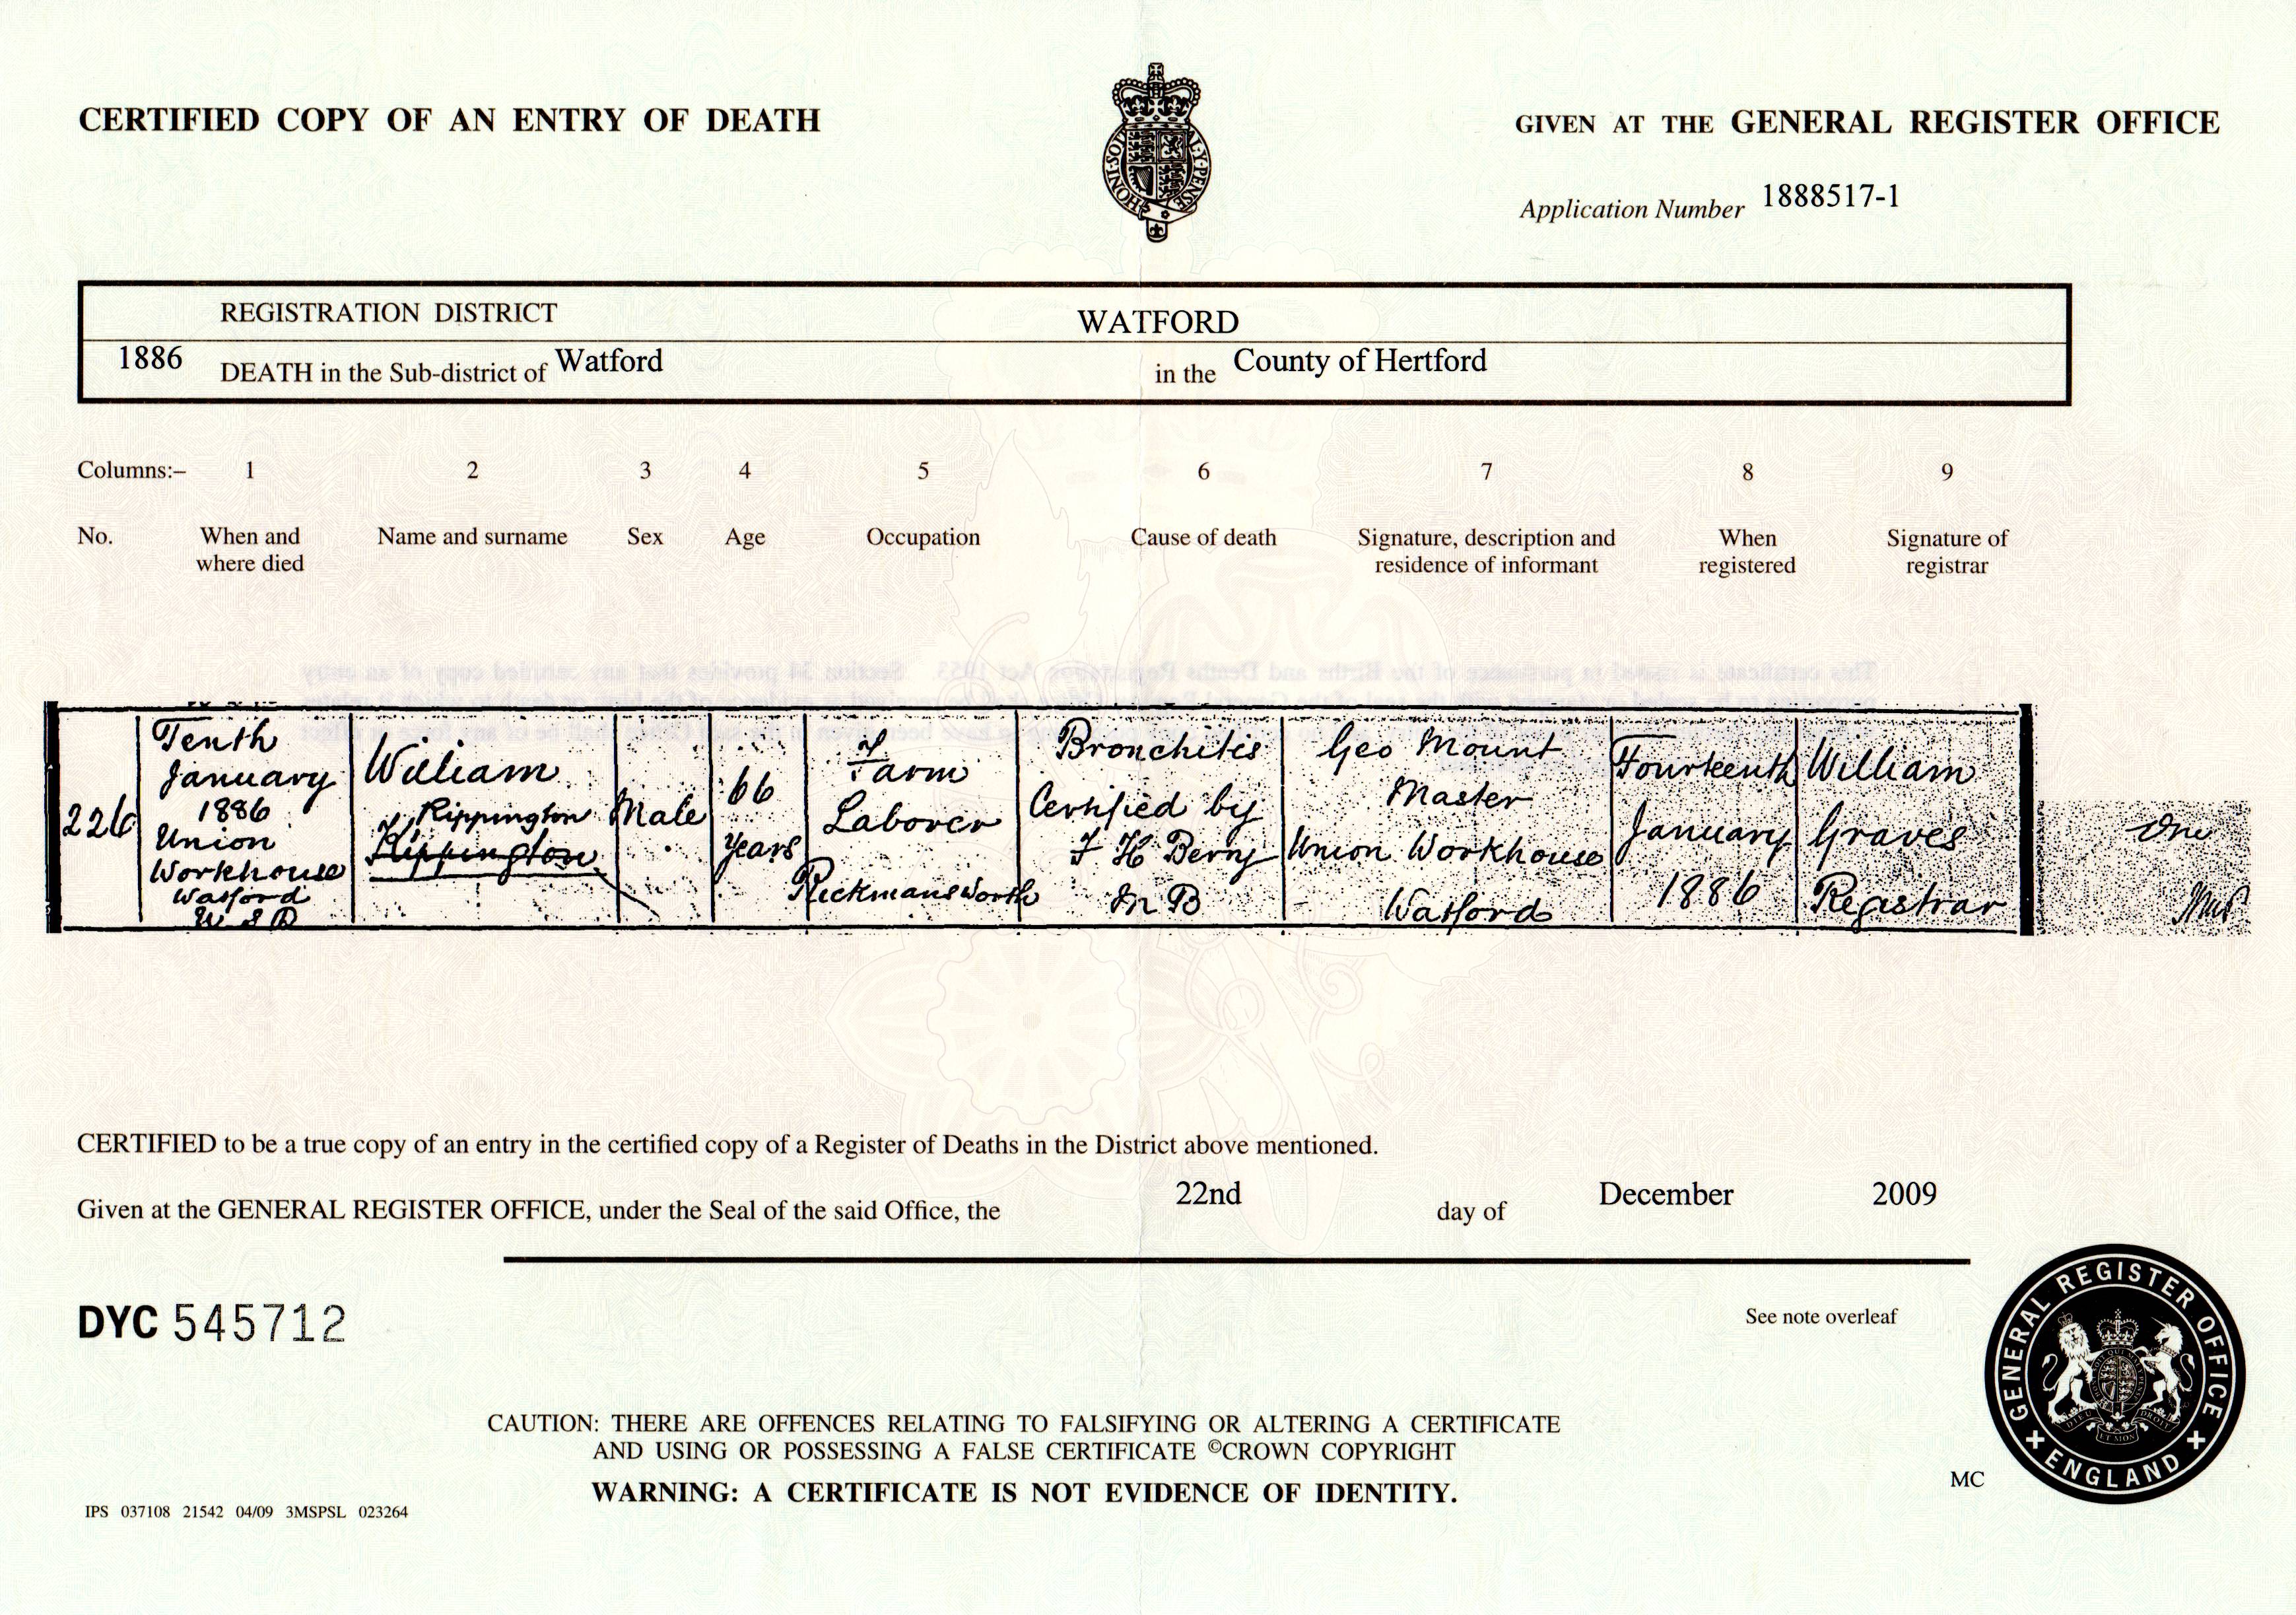 CERTIFIED COPY OF AN ENTRY OF DEATH
GIVEN AT THE GENERAL REGISTER OFFICE
HONI·SOI
AL·Y·PENSE
Application Number 1888517-1
REGISTRATION DISTRICT WATFORD
1886 DEATH in the Sub-district of Watford in the County of Hertford
Columns:– 1 2 3 4 5 6 7 8 9
No.
When and
where died
Name and surname
Sex
Age
Occupation
Cause of death
Signature, description and
residence of informant
When
registered
Signature of
registrar
226
Tenth
January
1886
Union
Workhouse
Watford
U S D
William
Rippington
Kippington
Male
66
years
Farm
Laborer
Rickmansworth
Bronchitis
Certified by
F H Berry
M B
Geo Mount
Master
Union Workhouse
Watford
Fourteenth
January
1886
William
Graves
Registrar
CERTIFIED to be a true copy of an entry in the certified copy of a Register of Deaths in the District above mentioned.
Given at the GENERAL REGISTER OFFICE, under the Seal of the said Office, the 22nd day of December 2009
DYC 545712
See note overleaf
GENERAL REGISTER OFFICE
ENGLAND
CAUTION: THERE ARE OFFENCES RELATING TO FALSIFYING OR ALTERING A CERTIFICATE
AND USING OR POSSESSING A FALSE CERTIFICATE ©CROWN COPYRIGHT
WARNING: A CERTIFICATE IS NOT EVIDENCE OF IDENTITY.
MC
IPS 037108 21542 04/09 3MSPSL 023264